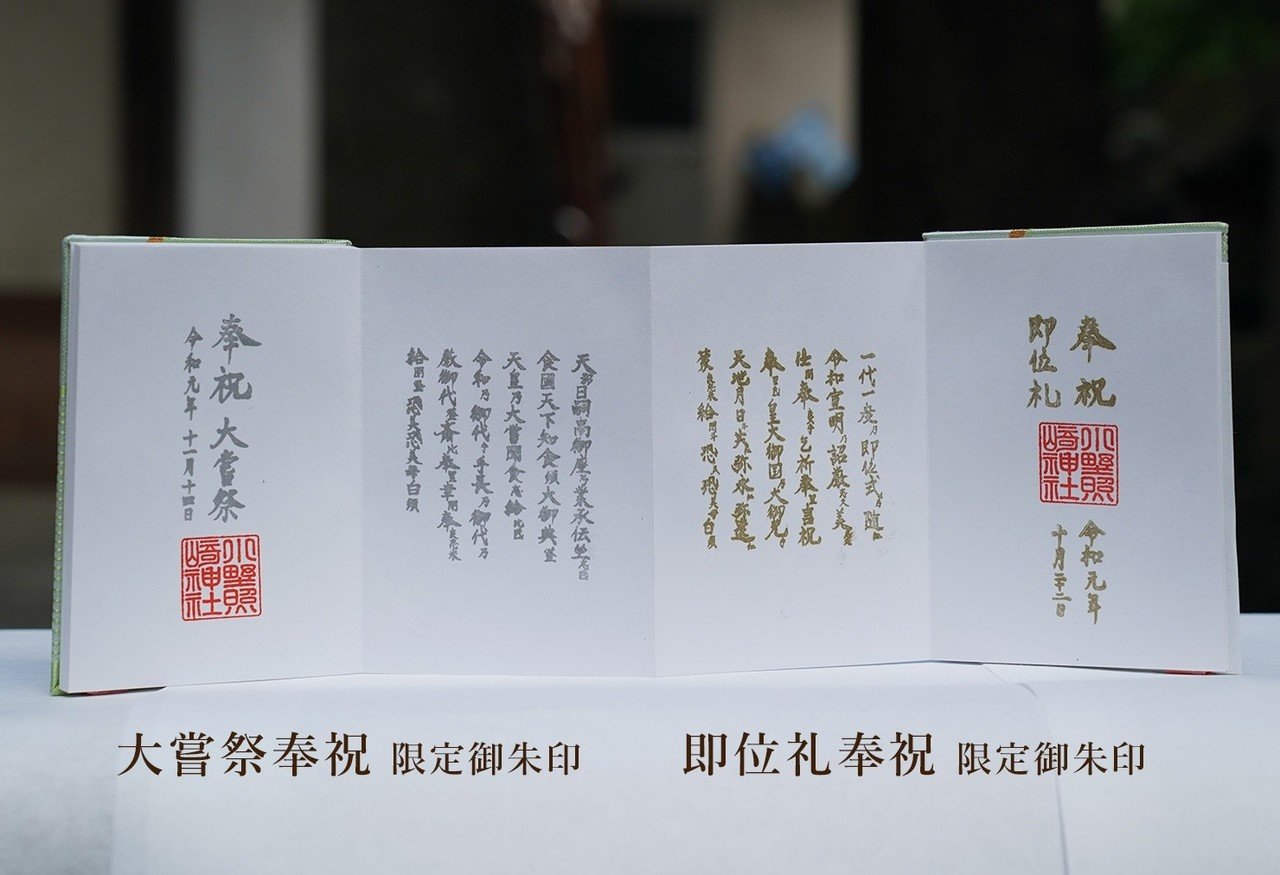 奉祝
即位礼
小野照崎神社
令和元年
十月二十二日
一代一度乃即位式乃随
令和宣明乃詔厳美
仕奉乞祈奉里言祝
奉皇大御国乃大御光
天地月日共弥永弥遠
給恐美恐美母白須
天都日嗣高御座乃業承伝坐志氐
食國天下知食須大御典登
天皇乃大嘗聞食志給比氐
令和乃御代乎手長乃御代乃
厳御代登斎比奉里幸閇奉良志米
給閇登恐美恐美母白須
奉祝大嘗祭
令和元年十一月十四日
小野照崎神社
大嘗祭奉祝 限定御朱印
即位礼奉祝 限定御朱印